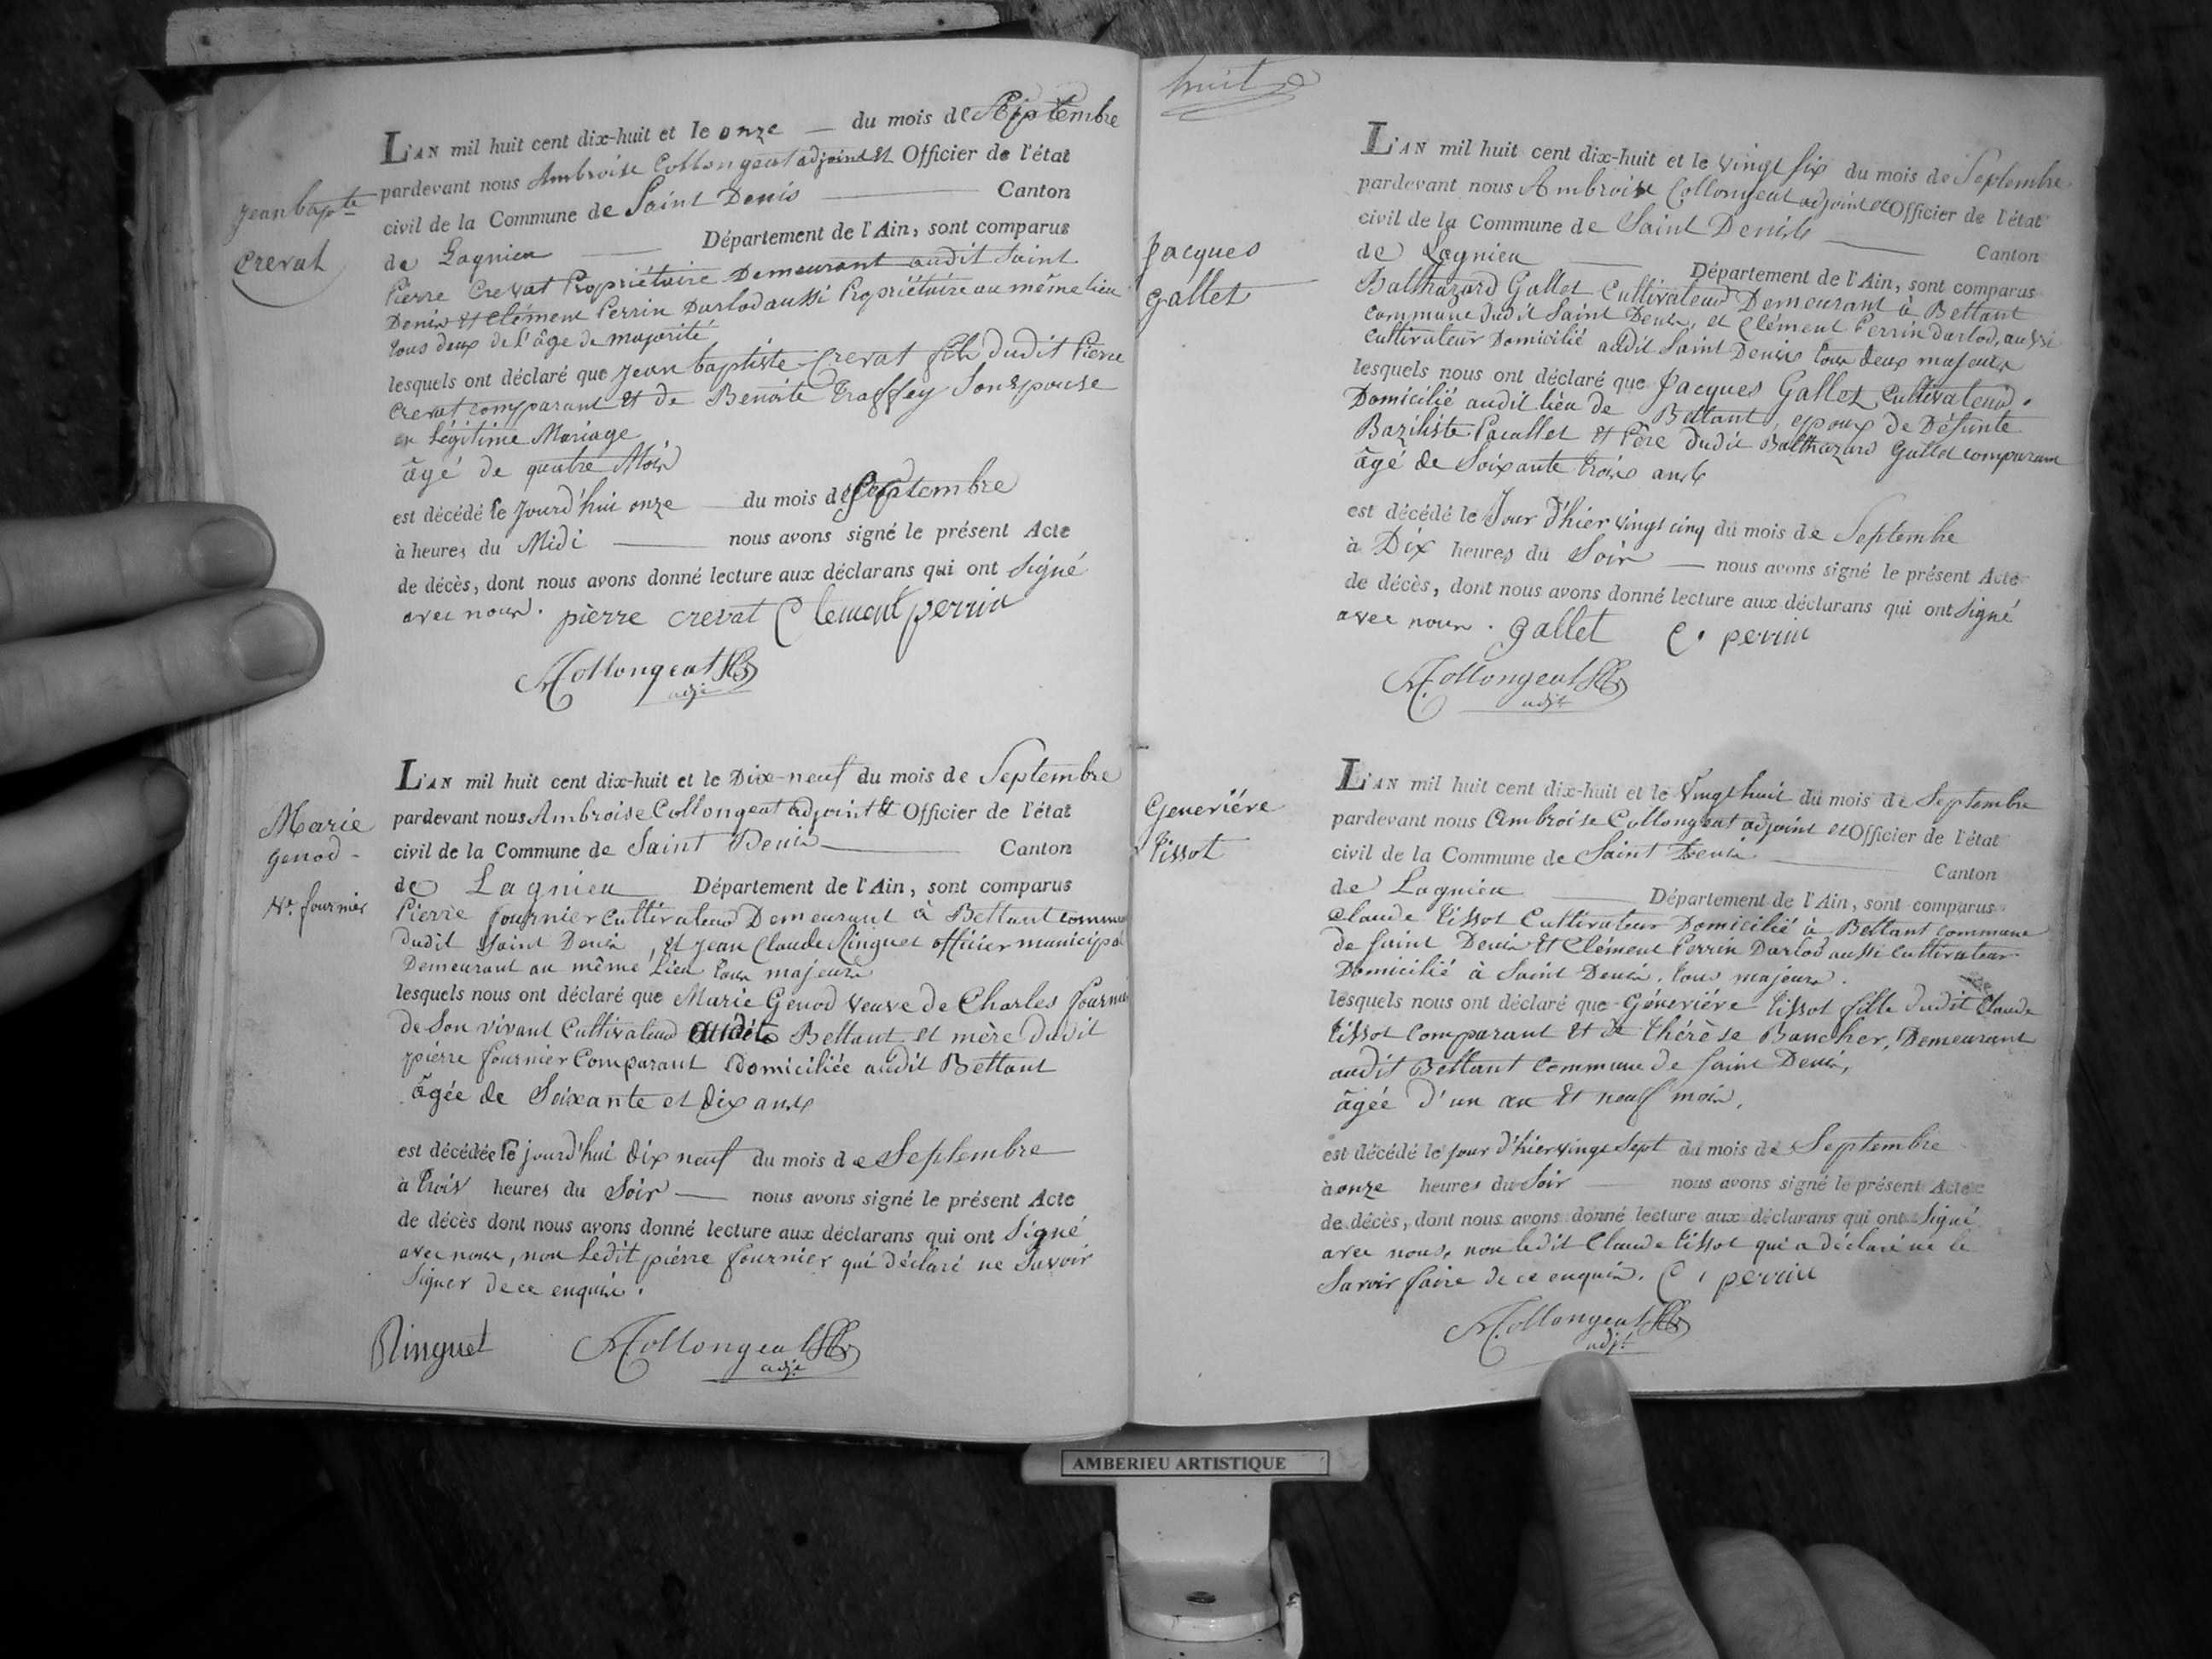 Jean bapte
Crevat
L'AN mil huit cent dix-huit et le onze — du mois de Septembre
pardevant nous Ambroise Collongeat adjoint et Officier de l'état
civil de la Commune de Saint Denis — Canton
de Lagnieu — Département de l'Ain, sont comparus
Pierre Crevat Propriétaire Demeurant audit Saint
Denis et Clément Perrin Darlod aussi Propriétaire au même lieu
tous deux de l'âge de majorité
lesquels ont déclaré que Jean baptiste Crevat fils dudit Pierre
Crevat comparant et de Benoite Traffey Son epouse
en Légitime Mariage
âgé de quatre Mois
est décédé le Jourd'hui onze — du mois de Septembre
à heures du Midi — nous avons signé le présent Acte
de décès, dont nous avons donné lecture aux déclarans qui ont Signé
avec nous. pierre crevat Clement perrin
Collongeat
adjt
Marie
Genod
Ve. fournier
L'AN mil huit cent dix-huit et le Dix-neuf du mois de Septembre
pardevant nous Ambroise Collongeat adjoint et Officier de l'état
civil de la Commune de Saint Denis — Canton
de Lagnieu Département de l'Ain, sont comparus
Pierre fournier Cultivateur Demeurant à Bettant commune
dudit Saint Denis, et Jean Claude Ringuet officier municipal
Demeurant au même Lieu tous majeurs
lesquels nous ont déclaré que Marie Genod Veuve de Charles fournier
de Son vivant Cultivateur audit Bettant et mère dudit
pierre fournier Comparant domiciliée audit Bettant
âgée de Soixante et dix ans
est décédée le jourd'hui dix neuf du mois de Septembre
à trois heures du Soir — nous avons signé le présent Acte
de décès dont nous avons donné lecture aux déclarans qui ont Signé
avec nous, non Ledit pierre fournier qui déclaré ne Savoir
Signer de ce enquis.
Ringuet Collongeat
adjt
huit
Jacques
Gallet
L'AN mil huit cent dix-huit et le vingt six du mois de Septembre
pardevant nous Ambroise Collongeat adjoint et Officier de l'état
civil de la Commune de Saint Denis — Canton
de Lagnieu — Département de l'Ain, sont comparus
Balthazard Gallet Cultivateur Demeurant à Bettant
commune dudit Saint Denis, et Clément Perrin darlod, aussi
cultivateur Domicilié audit Saint Denis tous deux majeurs
lesquels nous ont déclaré que Jacques Gallet Cultivateur
Domicilié audit lieu de Bettant, epoux de Défunte
Baziliste Pacallet et Père dudit Balthazard Gallet comparant
âgé de Soixante trois ans
est décédé le Jour d'hier vingt cinq du mois de Septembre
à Dix heures du Soir — nous avons signé le présent Acte
de décès, dont nous avons donné lecture aux déclarans qui ont Signé
avec nous. Gallet C. perrin
Collongeat
adjt
Geneviéve
Tissot
L'AN mil huit cent dix-huit et le Vingt huit du mois de Septembre
pardevant nous Ambroise Collongeat adjoint et Officier de l'état
civil de la Commune de Saint Denis — Canton
de Lagnieu — Département de l'Ain, sont comparus
Claude Tissot Cultivateur Domicilié à Bettant commune
de Saint Denis et Clément Perrin Darlod aussi cultivateur
Domicilié à Saint Denis. tous majeurs.
lesquels nous ont déclaré que Géneviéve Tissot fille dudit Claude
Tissot Comparant et de Thérèse Bancher, Demeurant
audit Bettant Commune de Saint Denis,
âgée d'un an et neuf mois,
est décédé le jour d'hier vingt Sept du mois de Septembre
à onze heures du Soir — nous avons signé le présent Acte
de décès, dont nous avons donné lecture aux déclarans qui ont Signé
avec nous, non ledit Claude Tissot qui a déclaré ne le
Savoir faire de ce enquis. C. perrin
Collongeat
adjt
AMBERIEU ARTISTIQUE